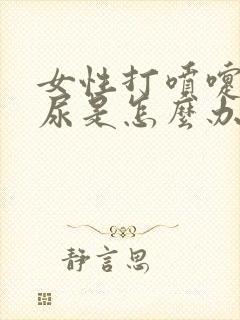 女性打噴嚏
尿是怎麼办
静言思